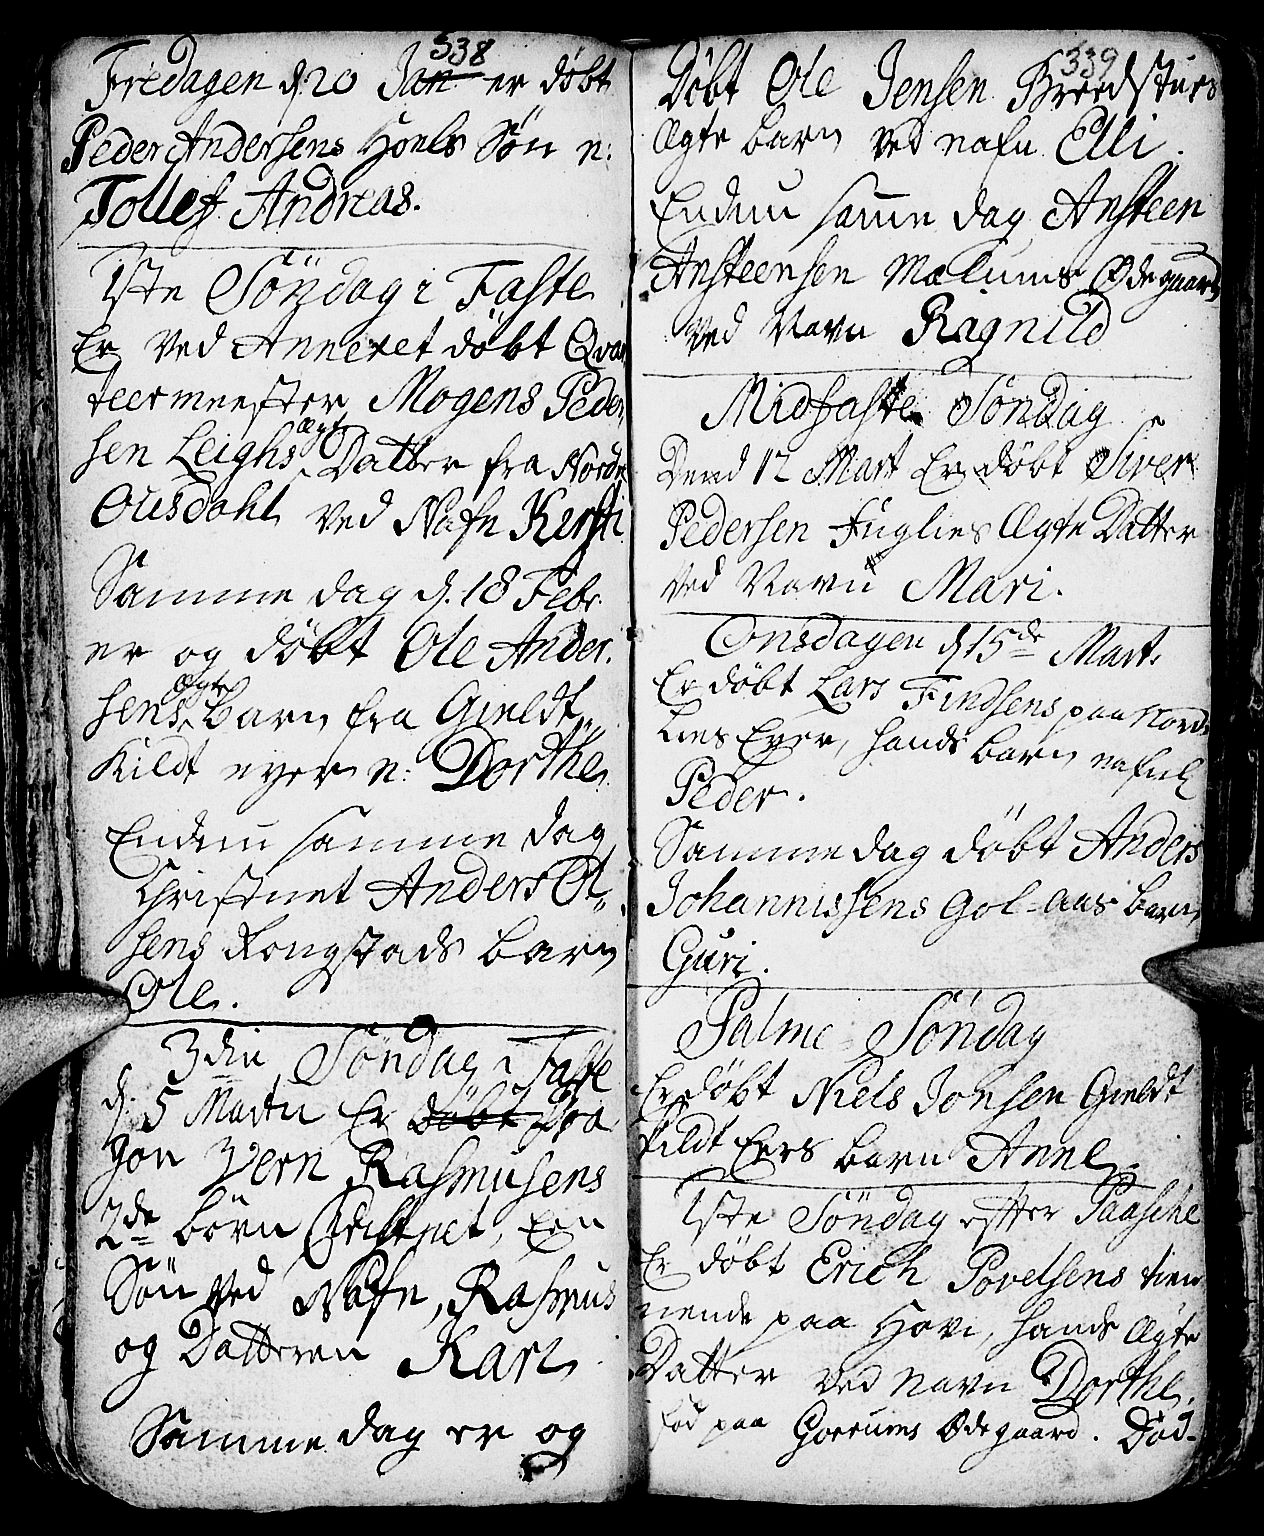 538
Fredagen d. 20 Jan er döbt
Peder Andersens Hoels Søn n:
Tollef Andreas.
1ste Söndag i Faste
Er ved Annexet döbt Qvar
teermeester Mogens Peder
sen Leighs Ægte Datter fra Nordre
Ousdahl ved Nafn Kersti
Samme dag d. 18 Febr.
er og döbt Ole Ander.
sens Ægte Barn fra Gieldt
Kildt eyer n: Dorthe
Endnu samme dag
Christnet Anders Ol,,
sens Rongstads Barn
Ole.
3die Söndag i Faste
d. 5 Martii Er döbt Dra
gon Ivern Rasmusens
2de börn Christnet, Een
Sön ved Nafn, Rasmus
og Datteren Kari
Samme dag er og
339
Döbt Ole Jensen Breedstues
Ægte barn ved nafn Elli.
Endnu samme dag Ansteen
Ansteensen Mælums Ødegaard
ved Navn Ragnild
Midfaste Söndag
Dend 12 Mart Er döbt Siver
Pedersen Fuglies Ægte Datter
ved Navn Mari.
Onsdagen d. 15de Mart.
Er döbt Lars Findsens paa Nord
lies Eyer, hands barn nafnl
Peder.
Samme dag döbt Anders
Johannissens Gol-aas barn
Guri.
Palme Söndag
Er döbt Niels Jonsen Gieldt
kildt Eyers barn Anne
1ste Söndag efter Paasche
Er döbt Erich Povelsens tien
nende paa Hovi, hands Ægte
Datter ved navn Dorthe.
fød paa Gorrums Ødegaard. Död-